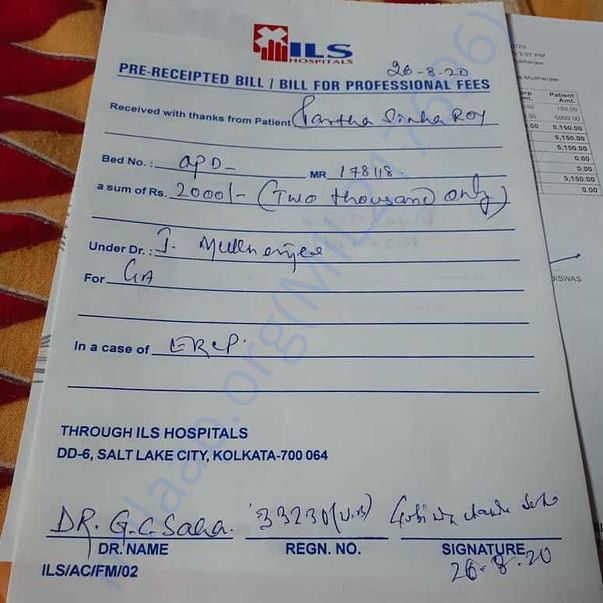 ILS
HOSPITALS
26-8.20
PRE-RECEIPTED BILL / BILL FOR PROFESSIONAL FEES
Received with thanks from Patient Partha Sinha Roy
Bed No.: OPD MR 17818.
a sum of Rs. 2000/- (Two thousand only)
Under Dr.: J. Mukherjee
For GA
In a case of ERCP.
THROUGH ILS HOSPITALS
DD-6, SALT LAKE CITY, KOLKATA-700 064
DR. G.C. Saha. 33230
DR. NAME REGN. NO. SIGNATURE
26-8.20
ILS/AC/FM/02
Patient
Amt.
150.00
5000.00
5,150.00
5,150.00
0.00
0.00
5,150.00
0.00